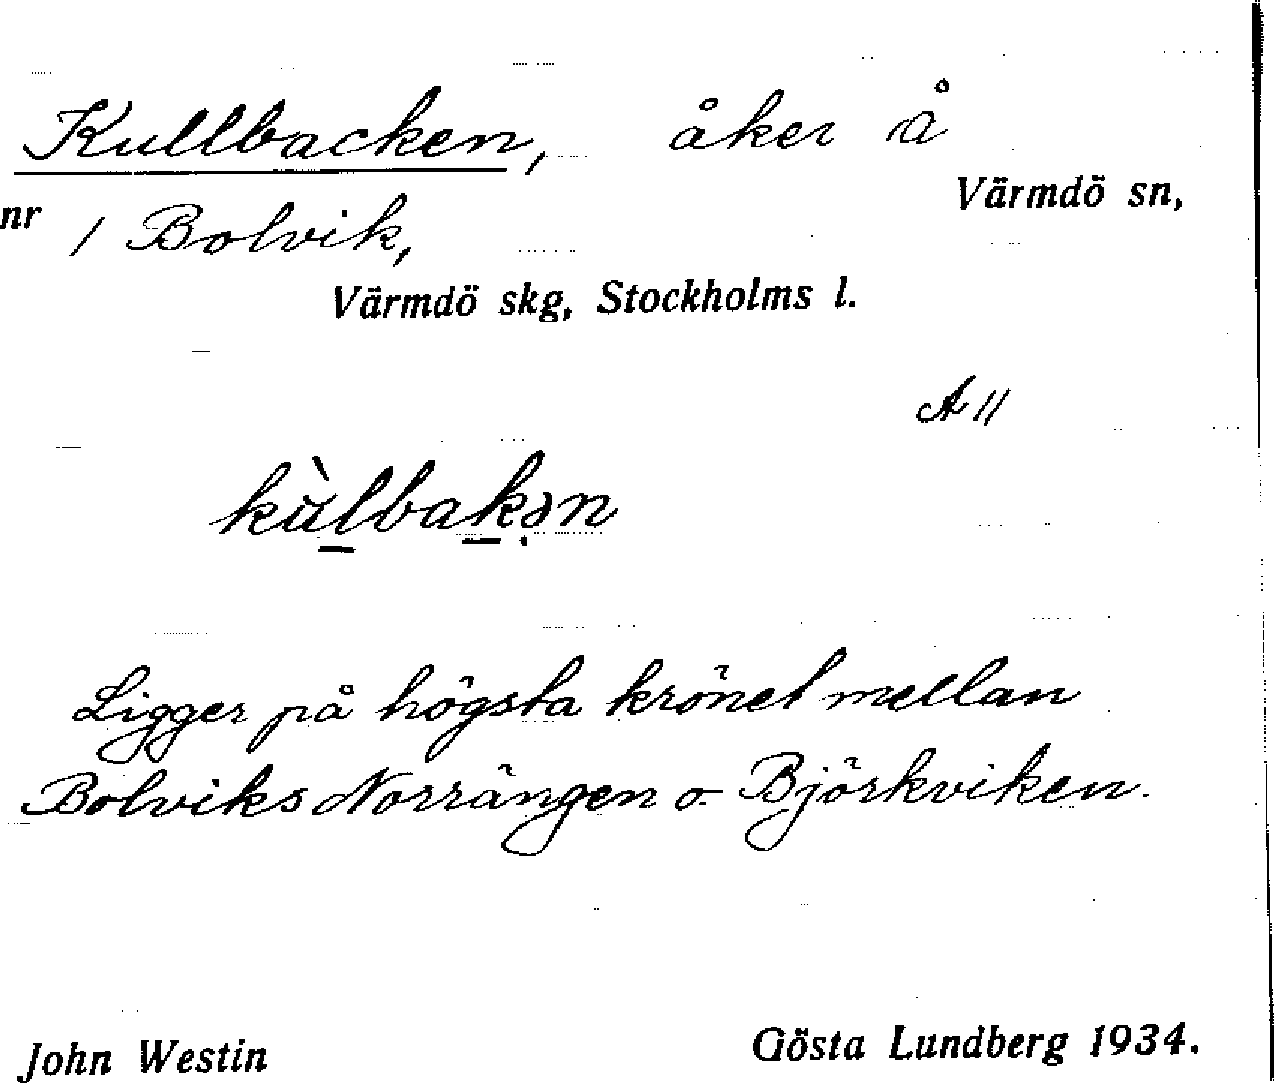 Kullbacken, åker å
Värmdö sn,
nr 1 Bolvik,
Värmdö skg, Stockholms l.
A 11
kùlbakən
Ligger på högsta krönet mellan
Bolviks Norrängen o. Björkviken.
John Westin Gösta Lundberg 1934.